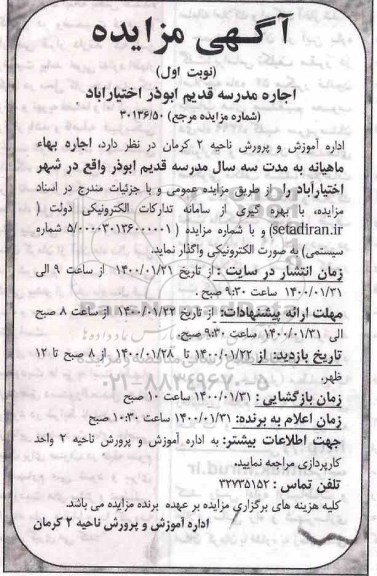 آگهی مزایده
(نوبت اول)
اجاره مدرسه قدیم ابوذر اختیاراباد
(شماره مزایده مرجع) ۳۰۱۳۶/۵۰
اداره آموزش و پرورش ناحیه ۲ کرمان در نظر دارد، اجاره بهاء
ماهیانه به مدت سه سال مدرسه قدیم ابوذر واقع در شهر
اختیاراباد را از طریق مزایده عمومی و با جزئیات مندرج در اسناد
مزایده، با بهره گیری از سامانه تدارکات الکترونیکی دولت (
setadiran.ir) و با شماره مزایده ( ۵/۰۰۰۰۳۰۱۳۶۰۰۰۰۰۱ شماره
سیستمی) به صورت الکترونیکی واگذار نماید.
زمان انتشار در سایت : از تاریخ ۱۴۰۰/۰۱/۲۱ از ساعت ۹ الی
۱۴۰۰/۰۱/۳۱ ساعت ۹:۳۰ صبح .
مهلت ارائه پیشنهادات: از تاریخ ۱۴۰۰/۰۱/۲۲ از ساعت ۸ صبح
الی ۱۴۰۰/۰۱/۳۱ ساعت ۹:۳۰ صبح.
تاریخ بازدید: از ۱۴۰۰/۰۱/۲۲ تا ۱۴۰۰/۰۱/۲۸ از ۸ صبح تا ۱۲
ظهر.
زمان بازگشایی : ۱۴۰۰/۰۱/۳۱ ساعت ۱۰ صبح
زمان اعلام به برنده: ۱۴۰۰/۰۱/۳۱ ساعت ۱۰:۳۰ صبح
جهت اطلاعات بیشتر: به اداره آموزش و پرورش ناحیه ۲ واحد
کارپردازی مراجعه نمایید.
تلفن تماس : ۳۲۷۳۵۱۵۲
کلیه هزینه های برگزاری مزایده بر عهده برنده مزایده می باشد.
اداره آموزش و پرورش ناحیه ۲ کرمان
۰۲۱-۸۸۳۴۹۶۷۰-۵